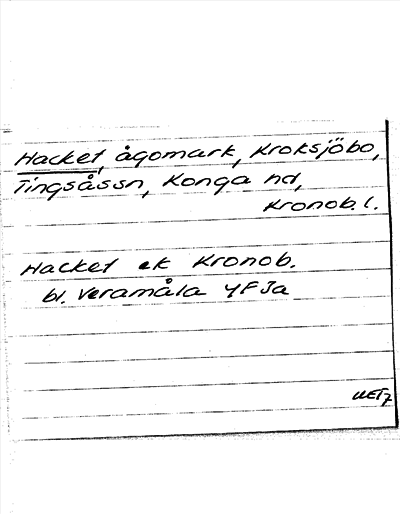 Hacket, ågomark, Kroksjöbo,
Tingsåssn, Konga hd,
Kronob. l.
Hacket ek Kronob.
bl. Veramåla 4F Ja